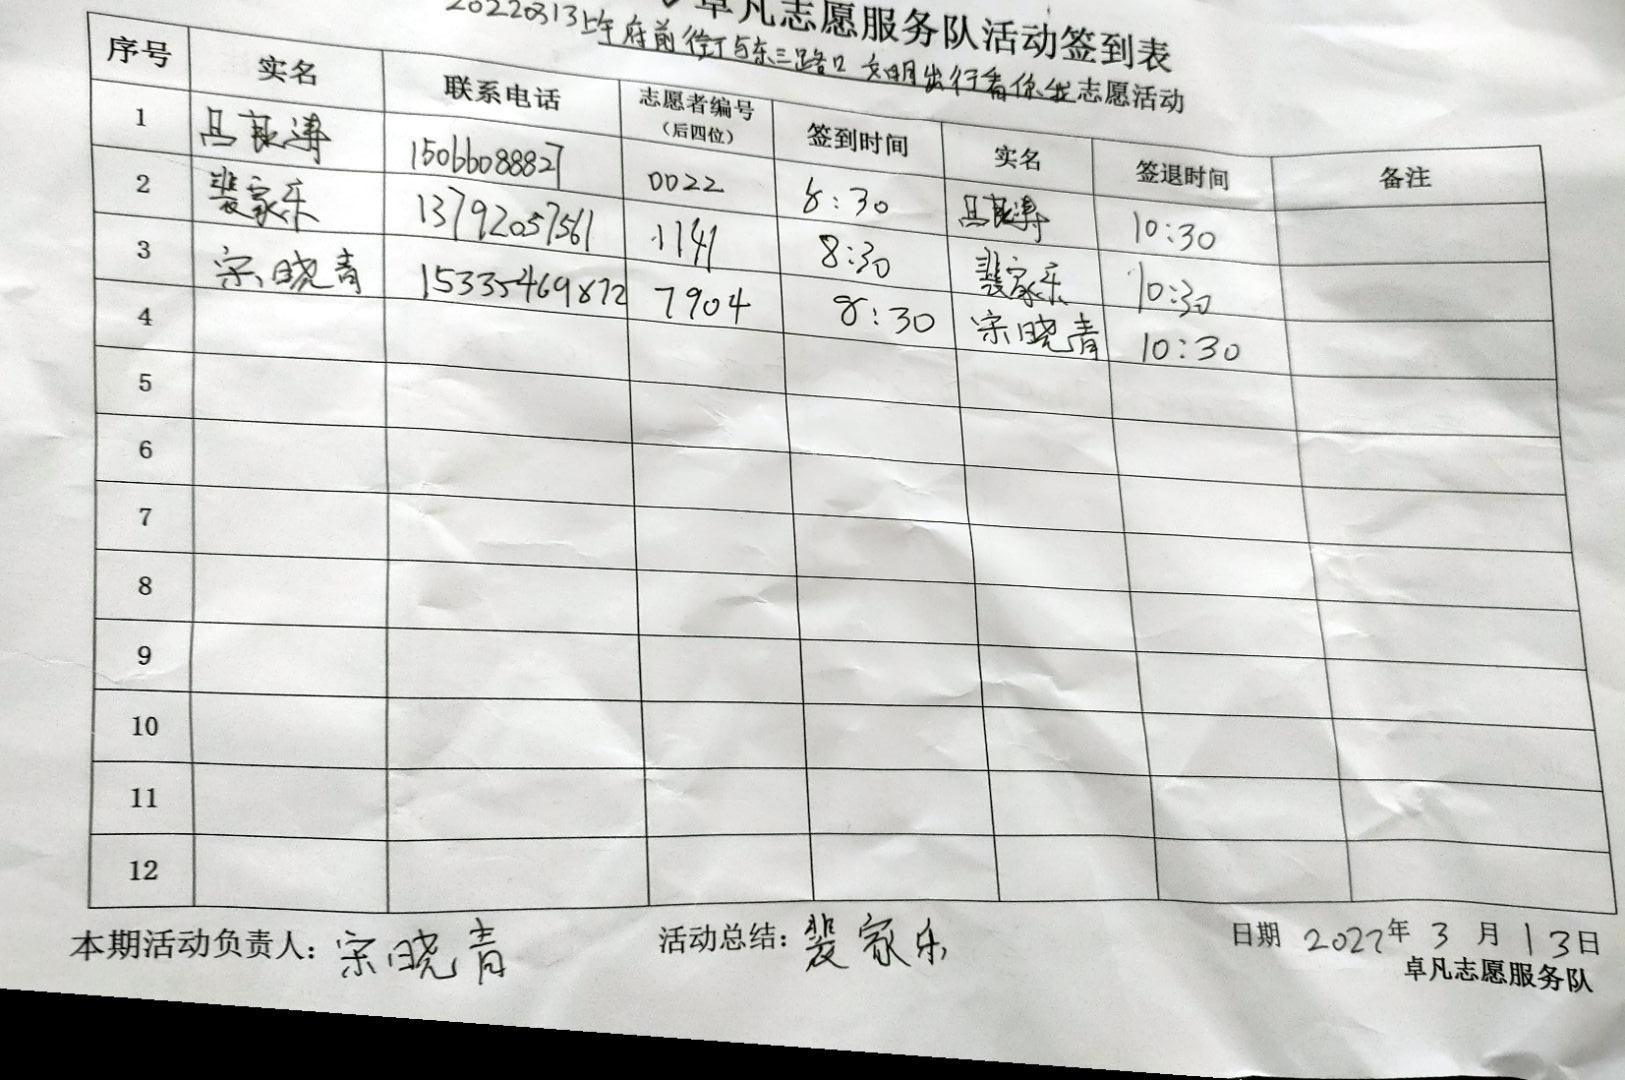 卓凡志愿服务队活动签到表
20220313上午府前街与东三路口 文明出行看你我志愿活动
序号 实名 联系电话 志愿者编号（后四位） 签到时间 实名 签退时间 备注
1 吕良涛 15066088827 0022 8:30 吕良涛 10:30
2 裴家乐 13792057561 1141 8:30 裴家乐 10:30
3 宋晓青 15335469872 7904 8:30 宋晓青 10:30
4
5
6
7
8
9
10
11
12
本期活动负责人：宋晓青 活动总结：裴家乐 日期 2022年3月13日
卓凡志愿服务队